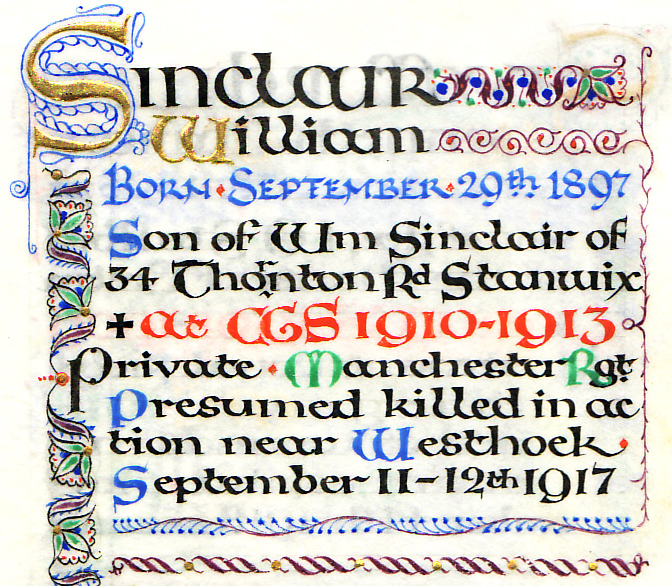 Sinclair
William
Born·September·29th 1897
Son of Wm Sinclair of
34 Thornton Rd Stanwix
+ at CGS 1910-1913
Private·Manchester Rgt
Presumed killed in ac
tion near Westhoek·
September 11-12th 1917